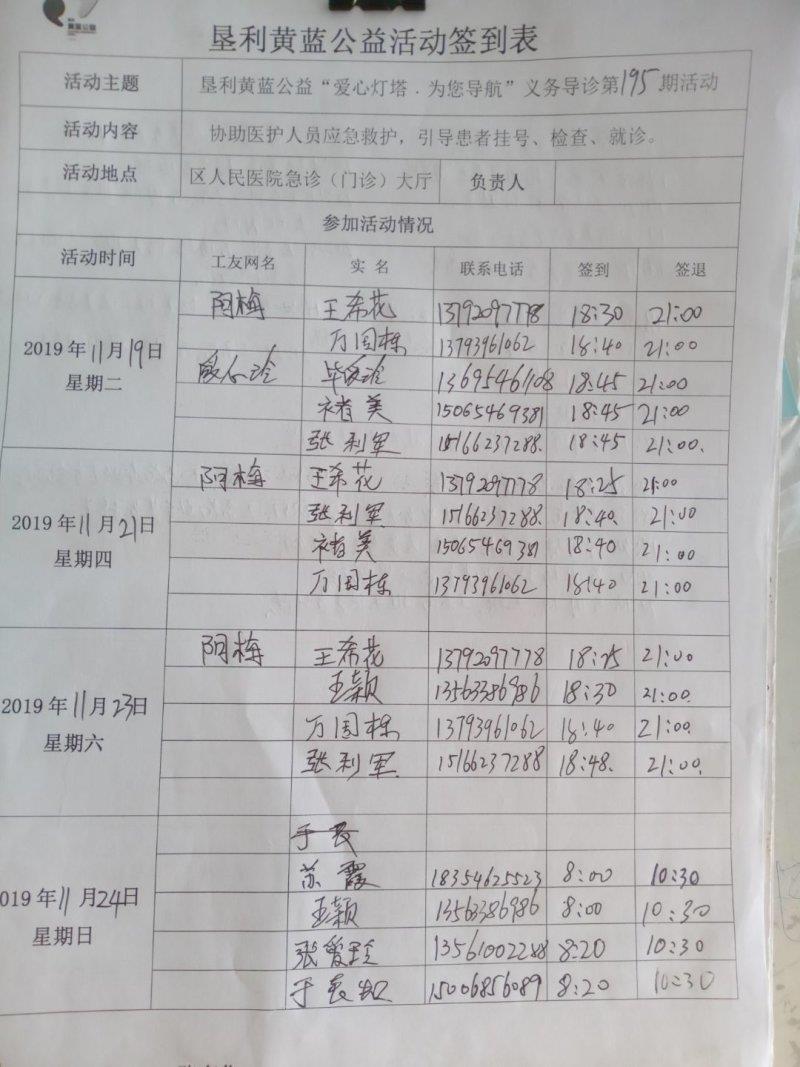 黄蓝公益
垦利黄蓝公益活动签到表
活动主题 垦利黄蓝公益“爱心灯塔．为您导航”义务导诊第195期活动
活动内容 协助医护人员应急救护，引导患者挂号、检查、就诊。
活动地点 区人民医院急诊（门诊）大厅 负责人
参加活动情况
活动时间 工友网名 实 名 联系电话 签到 签退
2019年11月19日 星期二
阿梅 王希花 13792097778 18:30 21:00
万国栋 13793961062 18:40 21:00
13695461108 18:45 21:00
褚美 15065469381 18:45 21:00
张利军 15166237288. 18:45 21:00.
2019年11月21日 星期四
阿梅 王希花 13792097778 18:25 21:00
张利军 15166237288. 18:40. 21:00
褚美 15065469381 18:40 21:00
万国栋 13793961062 18:40 21:00
2019年11月23日 星期六
阿梅 王希花 13792097778 18:25 21:00
王颖 13563386986 18:30 21:00.
万国栋 13793961062 18:40 21:00.
张利军 15166237288 18:48. 21:00.
019年11月24日 星期日
苏霞 18354625523 8:00 10:30
王颖 13563386986 8:00 10:30
张爱玲 13561002288 8:20 10:30
于 15006856089 8:20 10:30